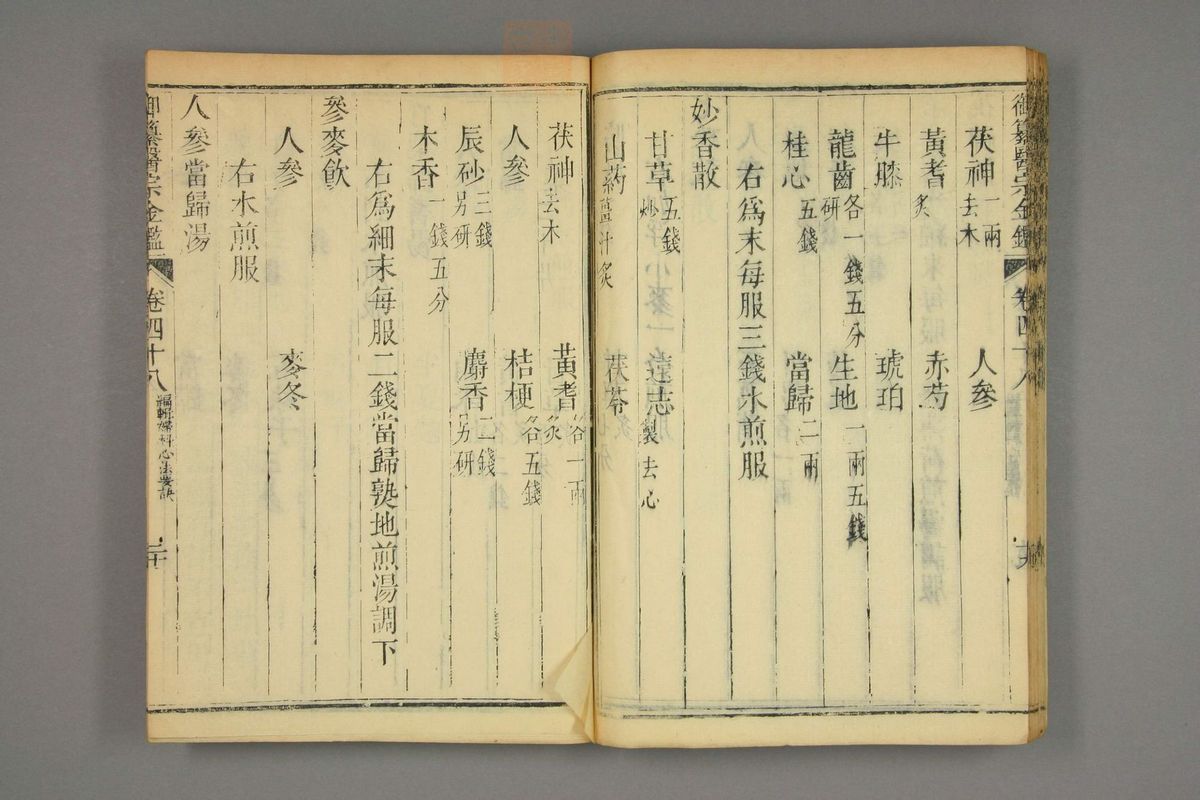 御纂醫宗金鑑 卷四十八
茯神一兩去木 人參
黃耆炙 赤芍
牛膝 琥珀
龍齒各一錢五分研 生地一兩五錢
桂心五錢 當歸二兩
右爲末每服三錢水煎服
妙香散
甘草五錢炒 遠志製去心
山葯薑汁炙 茯苓
茯神去木 黃耆各一兩炙
人參 桔梗各五錢
辰砂三錢另研 麝香一錢另研
木香一錢五分
右爲細末每服二錢當歸熟地煎湯調下
參麥飲
人參 麥冬
右水煎服
人參當歸湯
御纂醫宗金鑑 卷四十八 編輯婦科心法要訣 二十